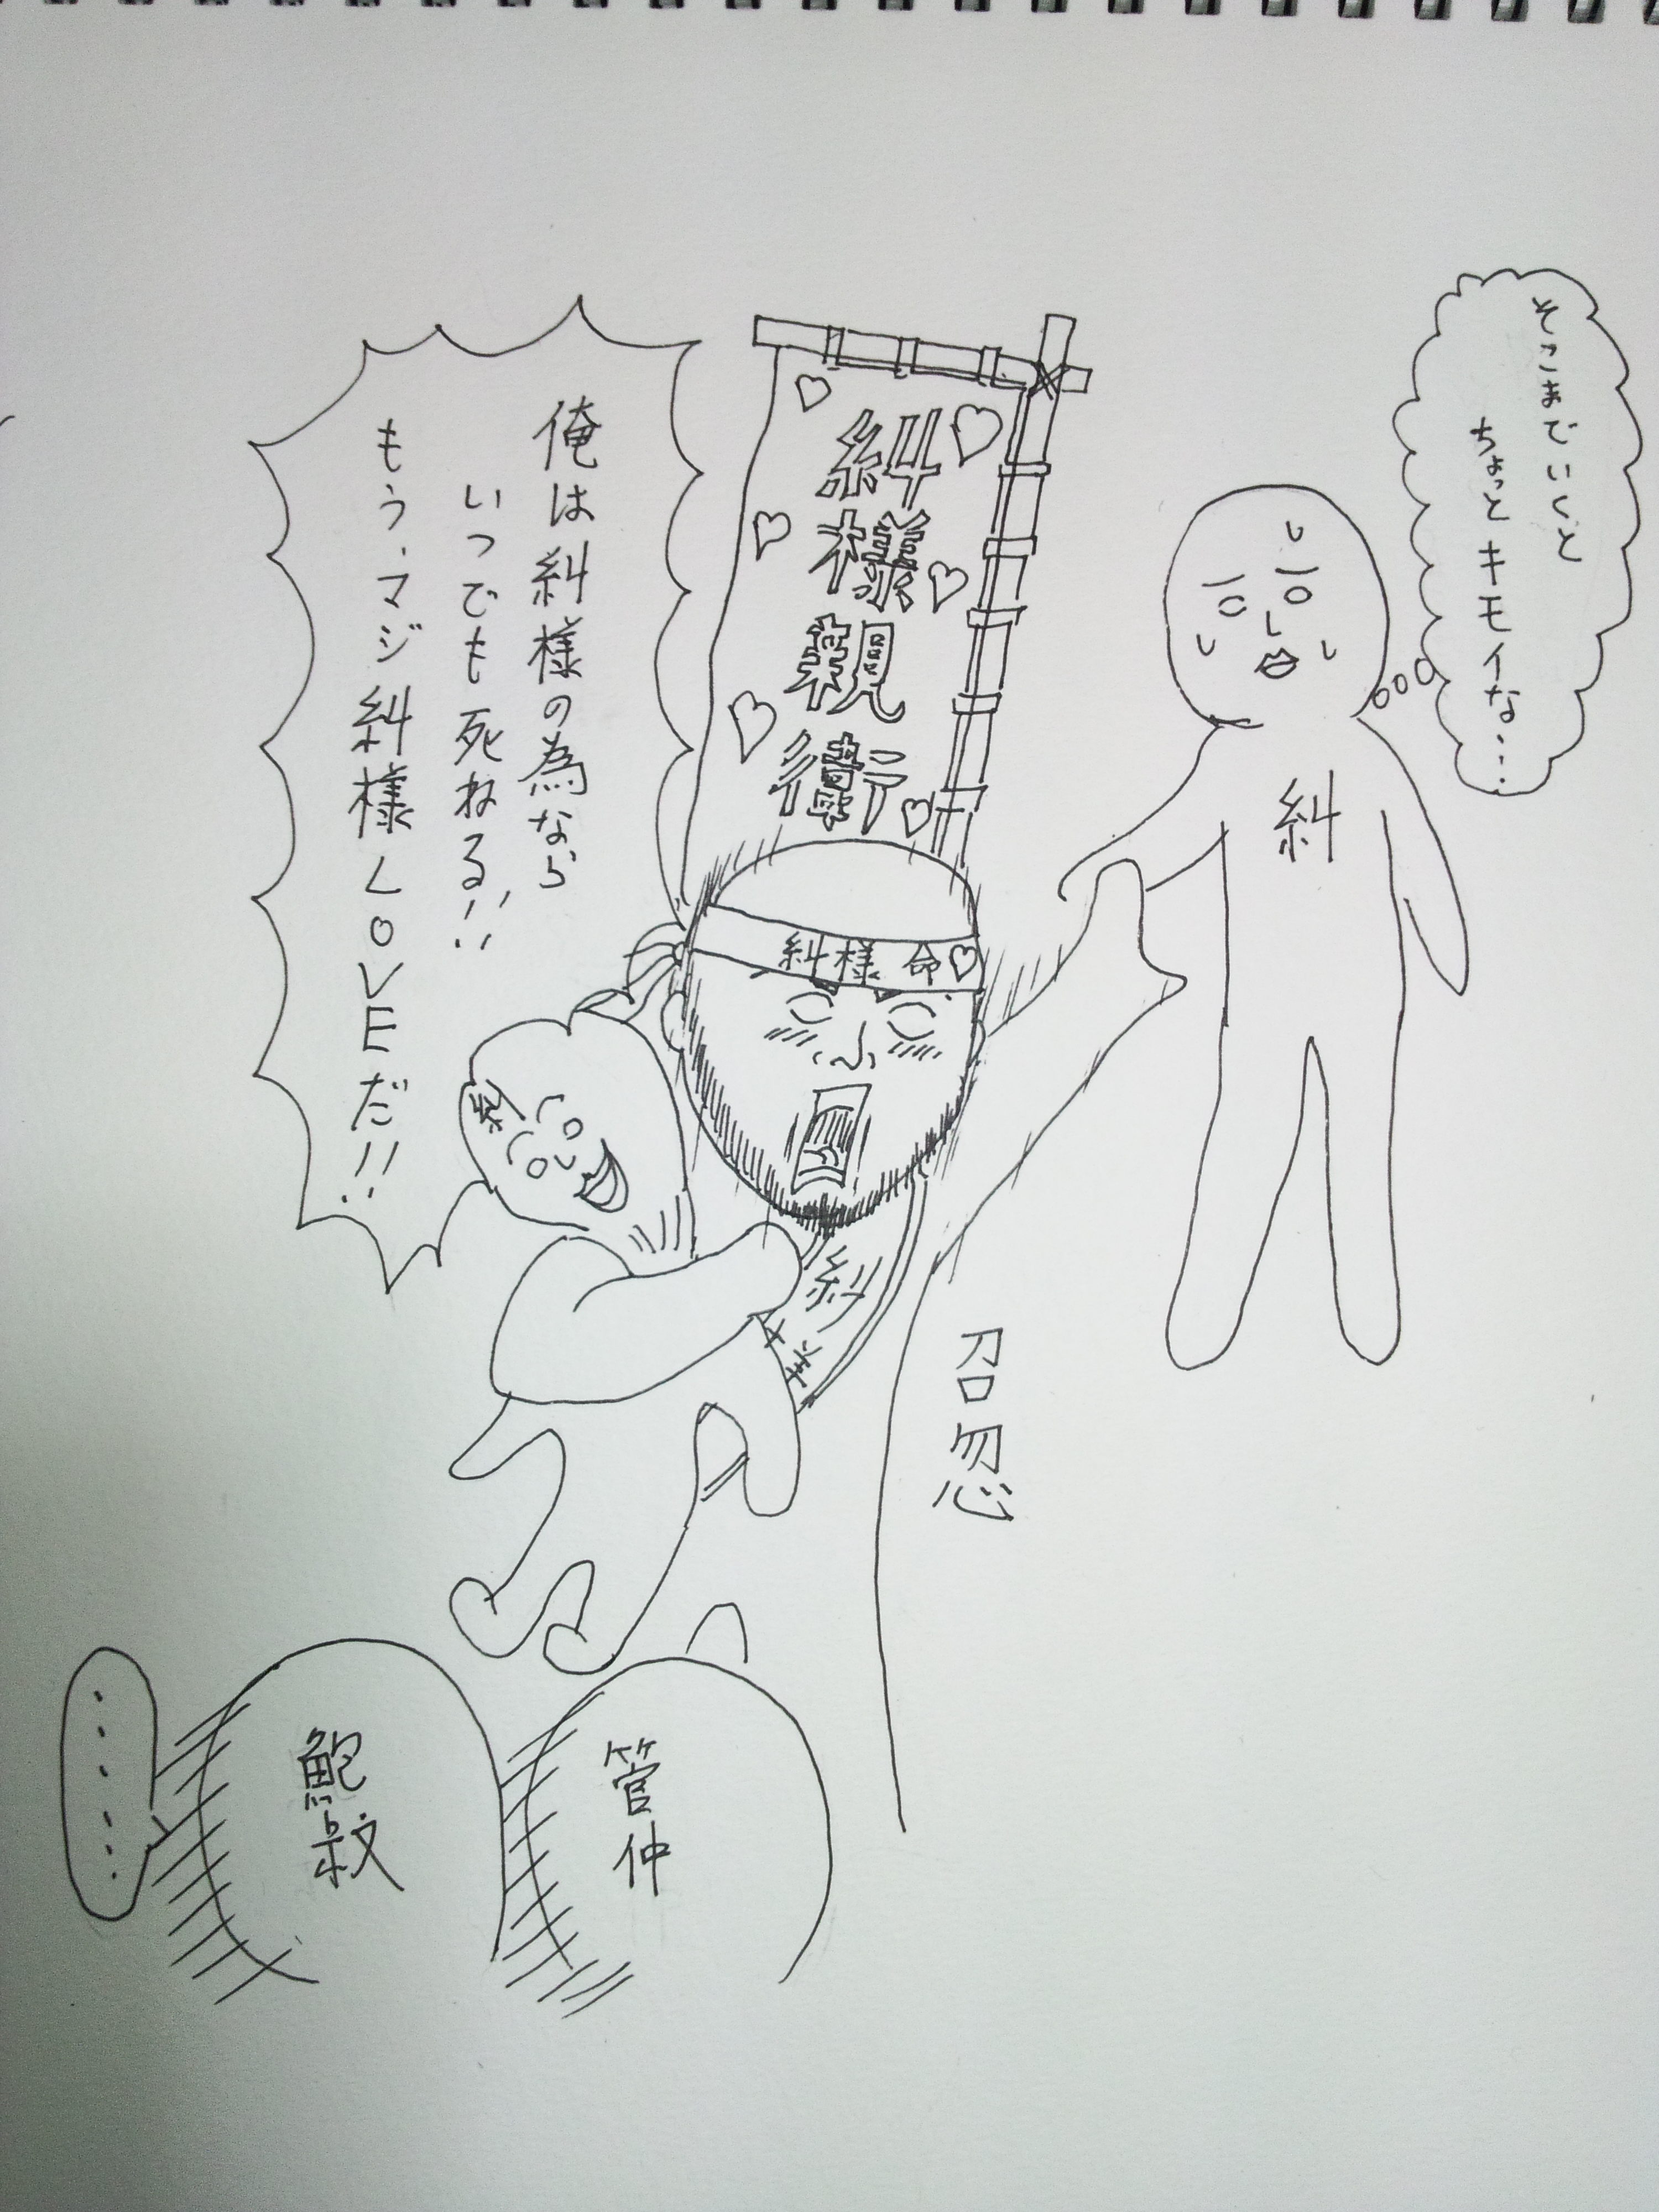 そこまでいくと
ちょっとキモイな…
糾
糾様親衛
糾様 命♡
俺は糾様の為なら
いつでも死ねる!!
もう、マジ糾様LOVEだ!!
糾
糾
召忽
管仲
鮑叔
……